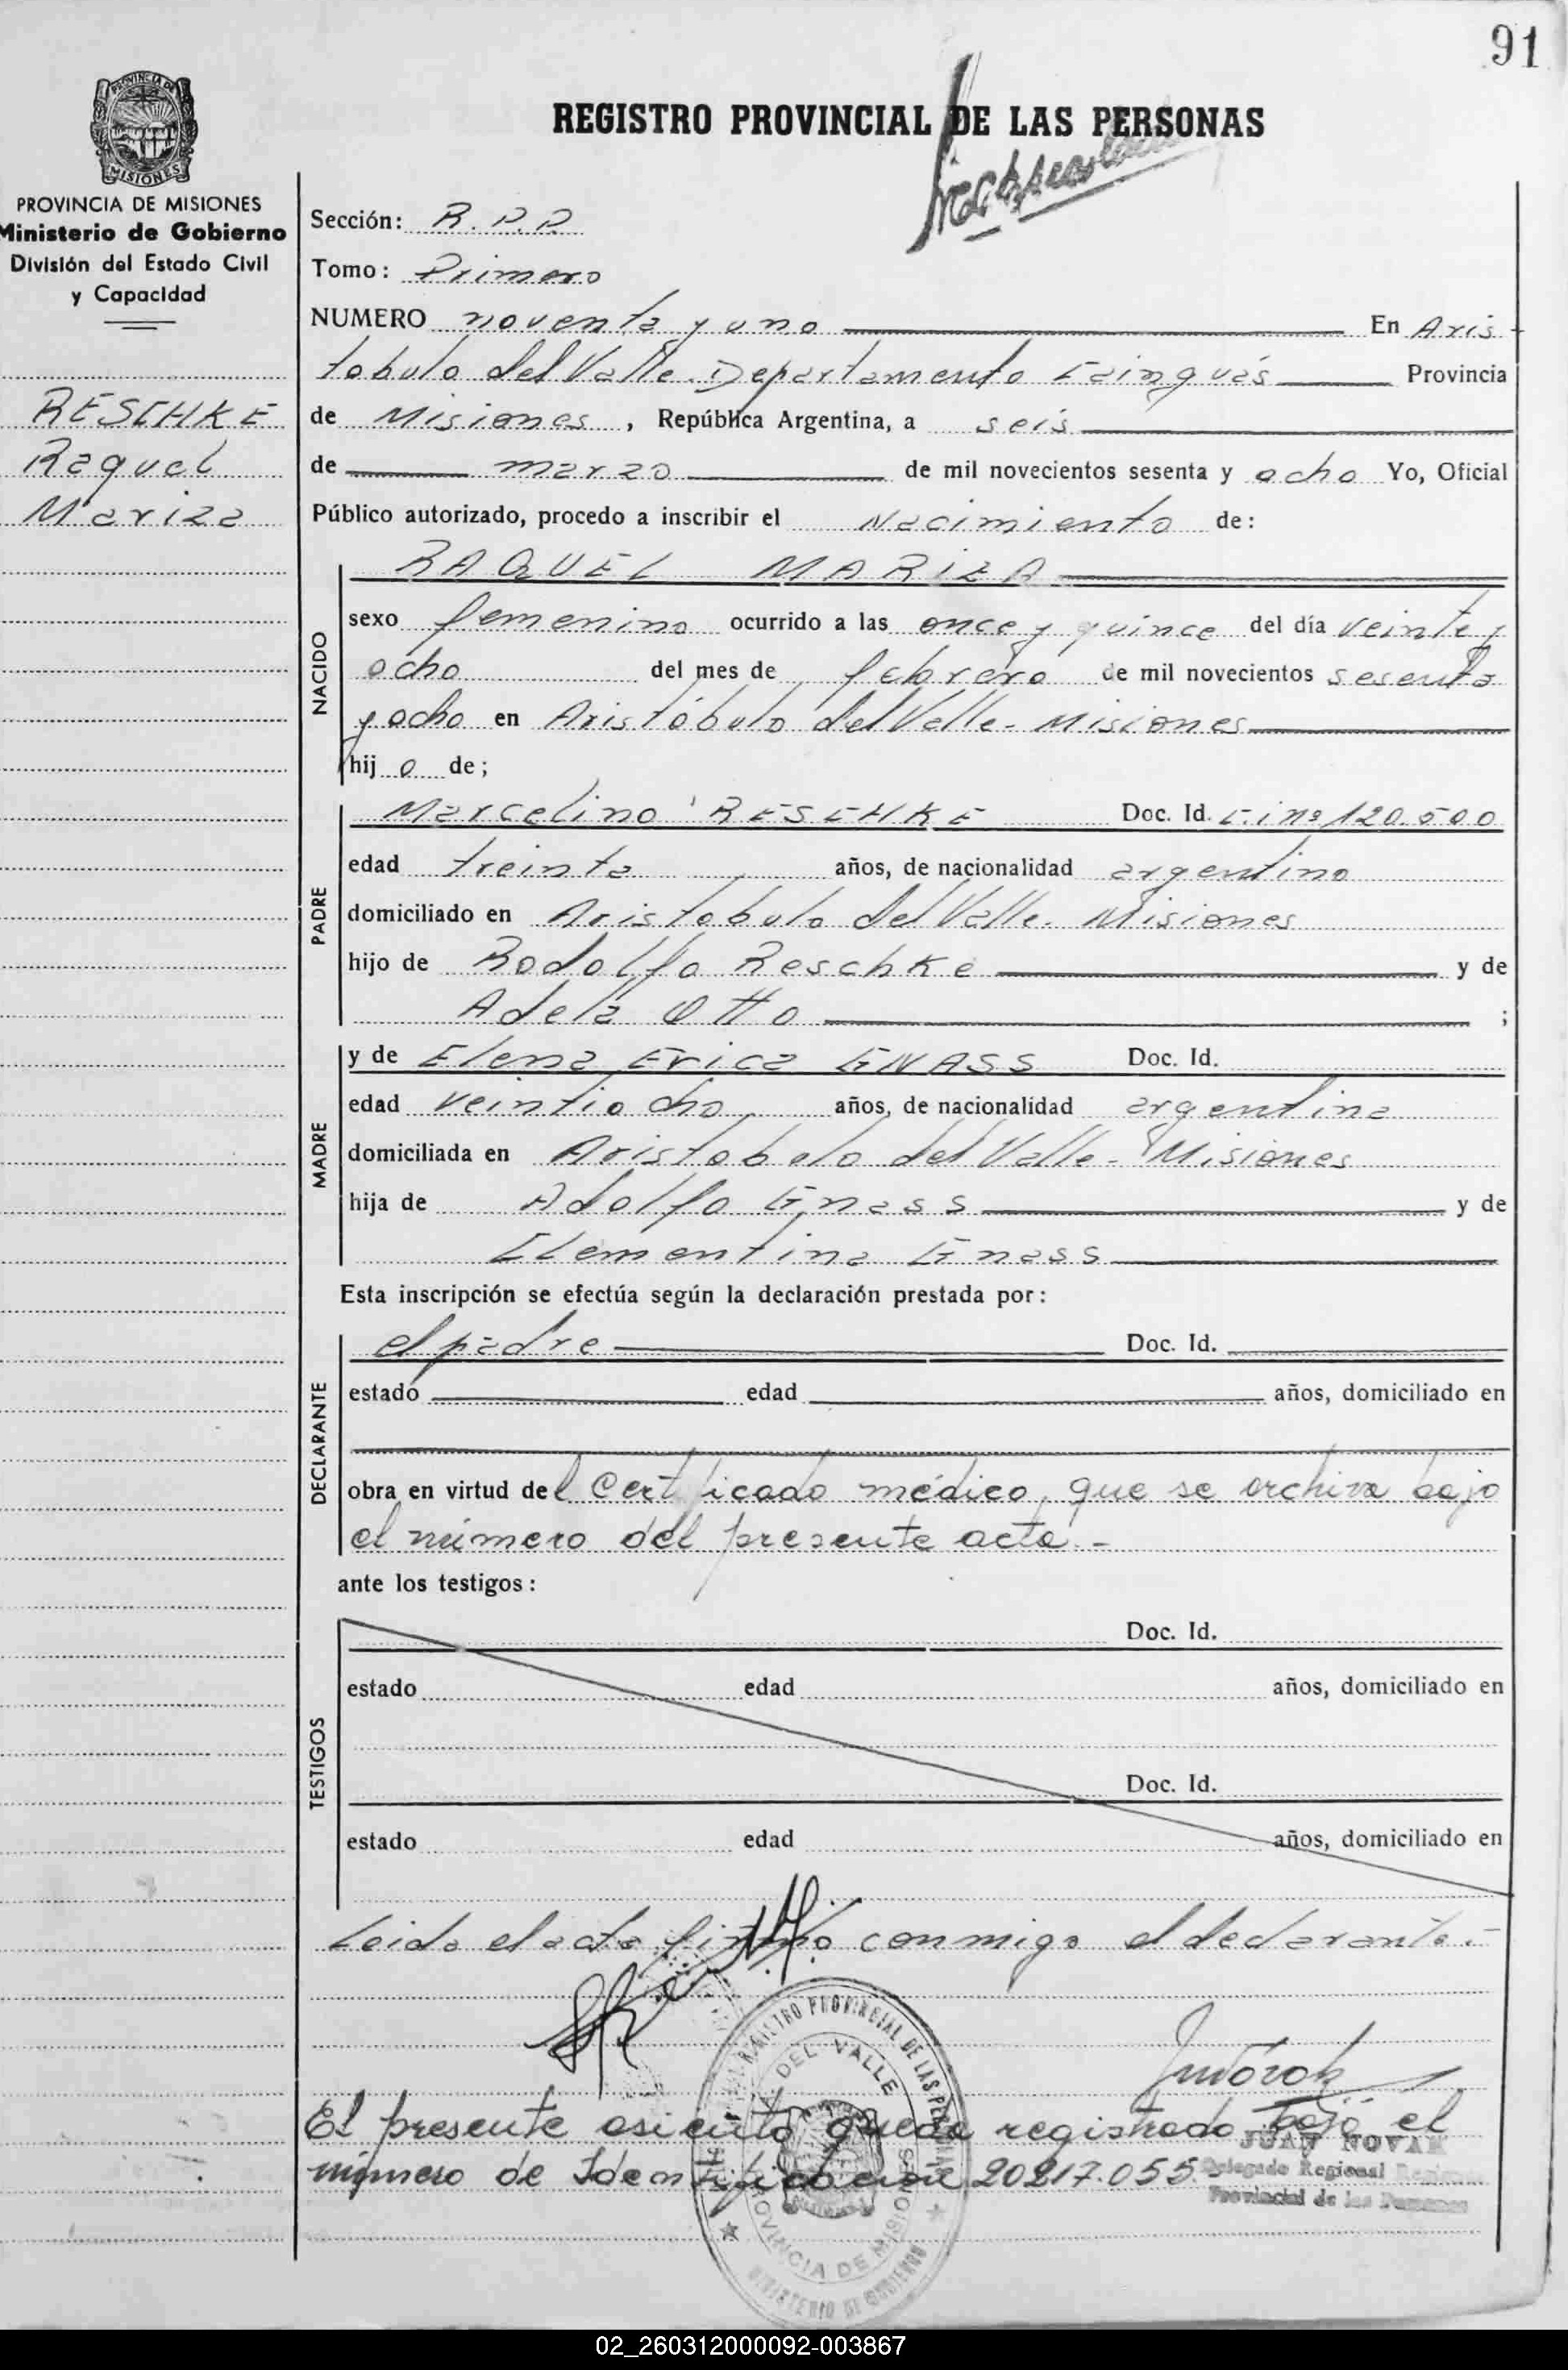 91
PROVINCIA DE MISIONES
REGISTRO PROVINCIAL DE LAS PERSONAS
PROVINCIA DE MISIONES
Ministerio de Gobierno
División del Estado Civil
y Capacidad
RESCHKE
Raquel
Mariza
Sección: R.P.P.
Tomo: Primero
NUMERO noventa y uno En Aris-
tobulo del Valle Departamento Cainguás Provincia
de Misiones, República Argentina, a seis
de marzo de mil novecientos sesenta y ocho Yo, Oficial
Público autorizado, procedo a inscribir el Nacimiento de:
NACIDO
RAQUEL MARIZA
sexo femenino ocurrido a las once y quince del día veinte y
ocho del mes de febrero de mil novecientos sesenta
y ocho en Aristóbulo del Valle - Misiones
hijo de;
PADRE
Marcelino RESCHKE Doc. Id. C.i nº 120.500
edad treinta años, de nacionalidad argentino
domiciliado en Aristobulo del Valle. Misiones
hijo de Rodolfo Reschke y de
Adela Otto ;
MADRE
y de Elena Erica GNASS Doc. Id.
edad veintiocho años, de nacionalidad argentina
domiciliada en Aristobulo del Valle - Misiones
hija de Adolfo Gnass y de
Clementina Gnass
Esta inscripción se efectúa según la declaración prestada por:
DECLARANTE
el padre Doc. Id.
estado edad años, domiciliado en
obra en virtud del Certificado médico, que se archiva bajo
el número del presente acta.-
ante los testigos:
TESTIGOS
Doc. Id.
estado edad años, domiciliado en
Doc. Id.
estado edad años, domiciliado en
Leida el acta firma conmigo el declarante.-
REGISTRO PROVINCIAL DE LAS PERSONAS
DEL VALLE
PROVINCIA DE MISIONES
MINISTERIO DE GOBIERNO
El presente asiento queda registrado bajo el
número de Identificacion 20217.055
JUAN NOVAK
Delegado Regional
Provincial de las Personas
02_260312000092-003867